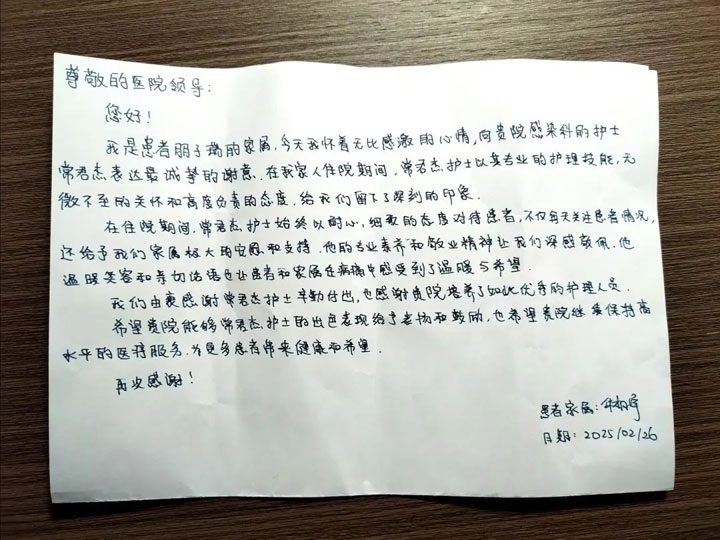 尊敬的医院领导:
您好!
我是患者明了瑞的家属,今天我怀着无比感激的心情,向贵院感染科的护士
常君杰表达最诚挚的谢意.在我家人住院期间,常君杰护士以其专业的护理技能,无
微不至的关怀和高度负责的态度,给我们留下了深刻的印象.
在住院期间,常君杰护士始终以耐心,细致的态度对待患者,不仅每天关注患者情况,
还给予我们家属极大的安慰和支持.他的专业素养和敬业精神让我们深感敬佩.他
温暖笑容和亲切话语也让患者和家属在病痛中感受到了温暖与希望.
我们由衷感谢常君杰护士辛勤付出,也感谢贵院培养了如此优秀的护理人员.
希望贵院能够常君杰护士的出色表现给予表扬和鼓励,也希望贵院继续保持高
水平的医疗服务.为更多患者带来健康和希望.
再次感谢!
患者家属:
日期:2025/02/26